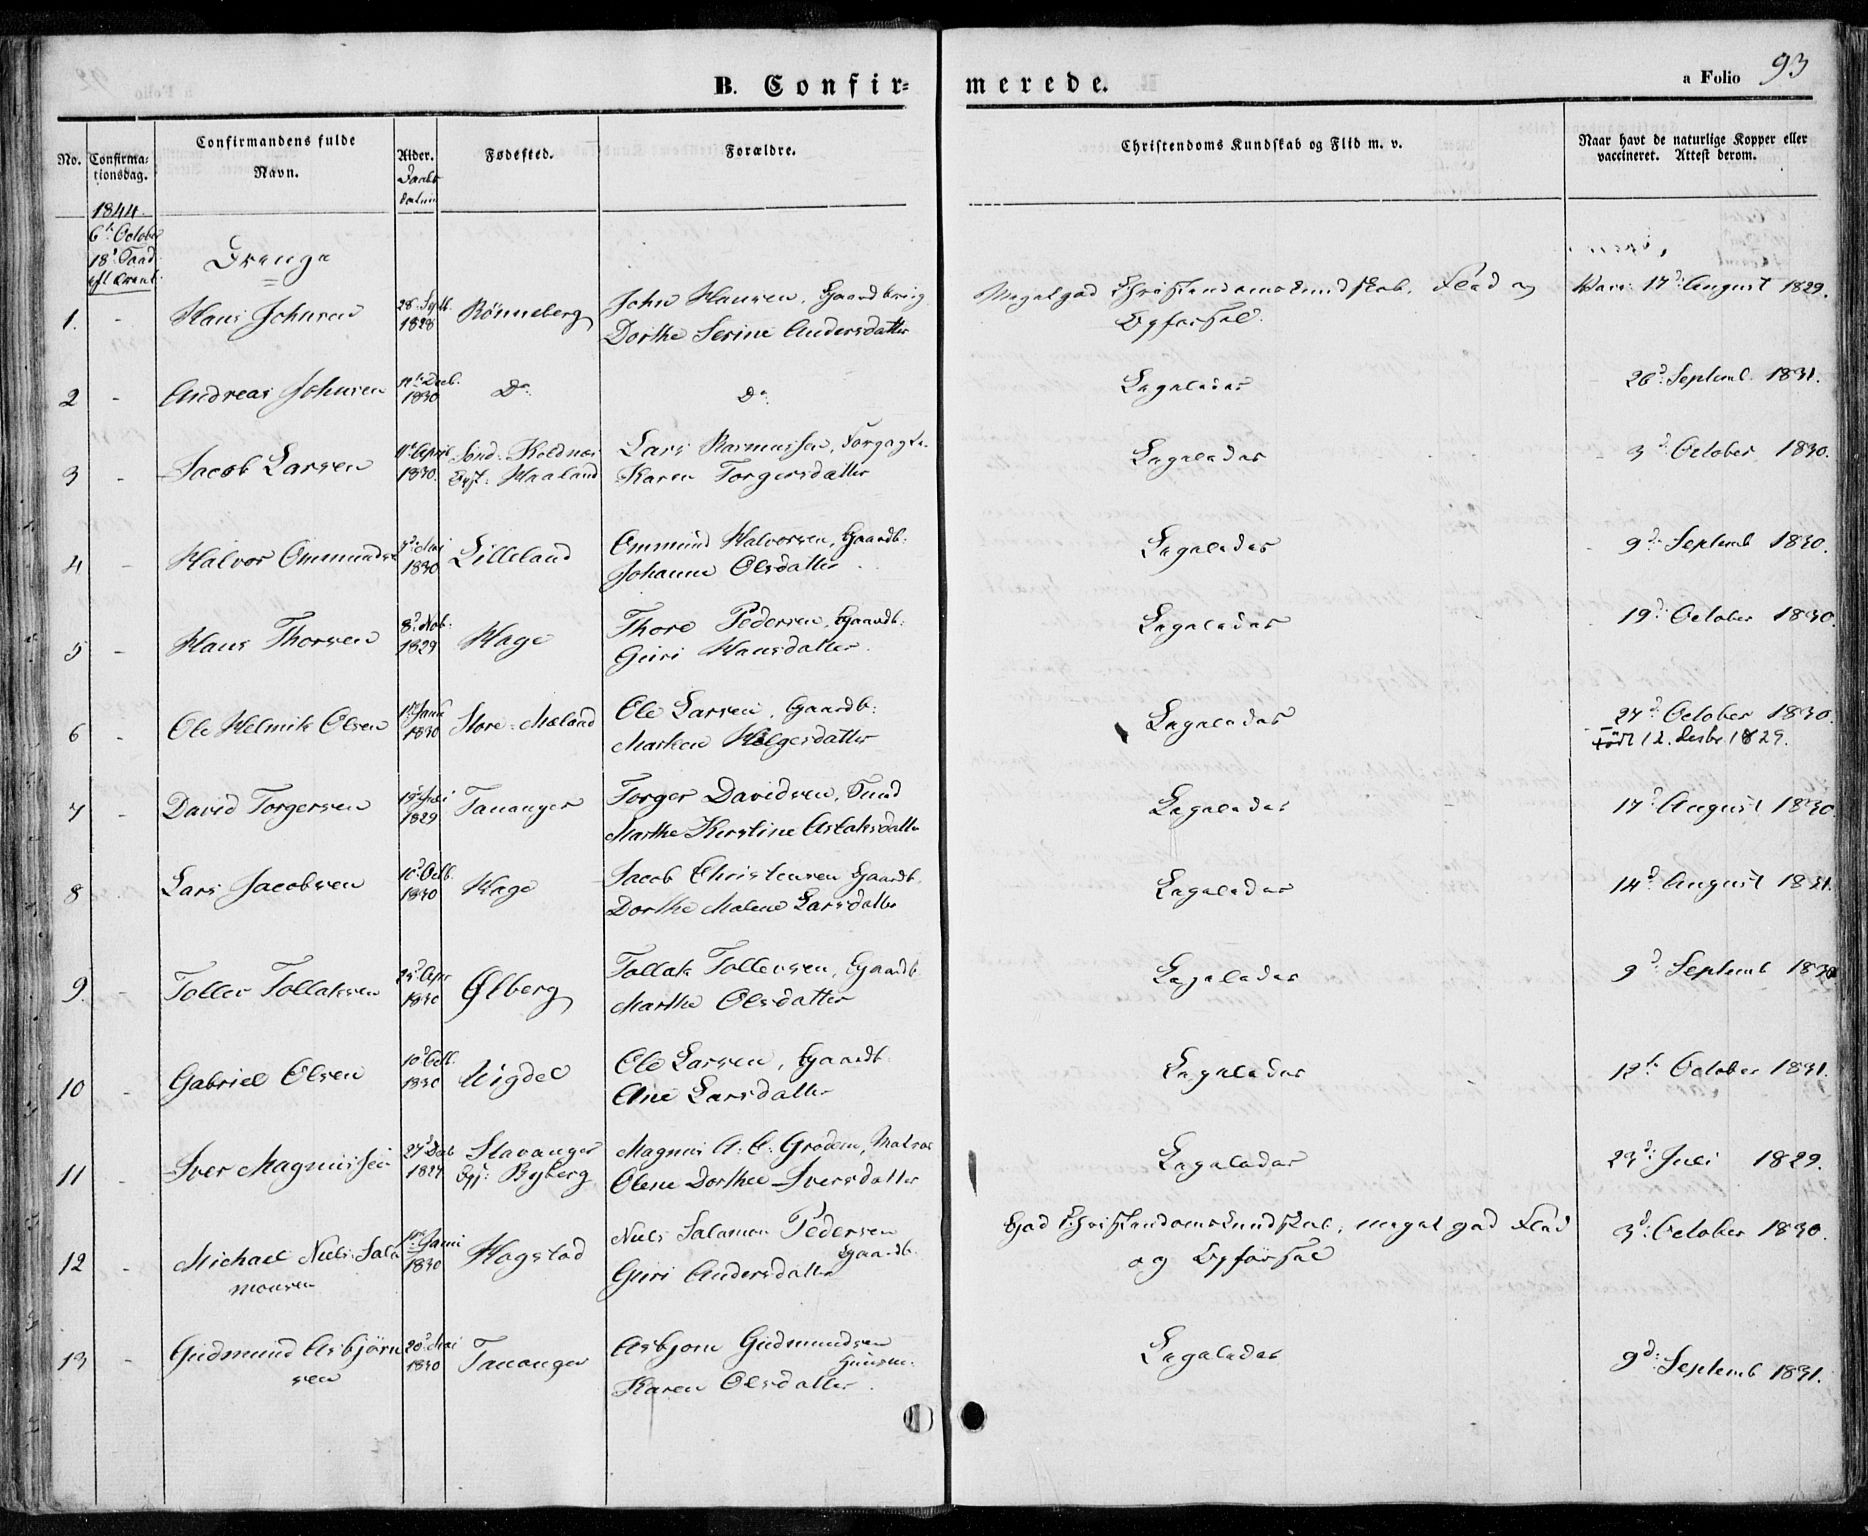 B. Confir=
merede.
a Folio 93
No.
Confirma:
tionsdag.
Confirmandens fulde
Navn.
Alder.
Fødested.
Forældre.
Christendoms Kundskab og Flid m. v.
Naar havt de naturlige Kopper eller
vaccineret. Attest derom.
1844.
6t October
Drenge
1. - Hans Johnsen
28 Septb. 1828
Rönneberg
John Hansen, Gaardbrug
Dorthe Serine Andersdatter
Meget god Christendomskundskab, Flid og
Opförsel.
Vacc. 17d August 1829.
2 - Andreas Johnsen
11t Decb. 1830
Do
Do
Ligeledes
26d Septemb. 1831.
3 - Jacob Larsen
11t April 1830.
Sönd: Koldnæs
Opf: Haaland
Lars Rasmussen,
Karen Torgersdatter
Ligeledes
3d October 1830.
4 - Halvor Ommundse
Mai 1830
Lilleland
Ommund Halvorsen, Gaardb:
Johanne Olsdatter
Ligeledes
9d Septemb 1830.
5 - Hans Thorsen
8d Nob. 1829
Hage
Thore Pedersen, Gaardb:
Guri Hansdatter.
Ligeledes
19d October 1830.
6 - Ole Helmik Olsen
1830
Store-Mæland
Ole Larsen, Gaardb:
Marken Helgesdatter
Ligeledes
27d October 1830.
födt 12. Desbr. 1829.
7 - David Torgersen
1829
Tananger
Torger Davidsen,
Marthe Kirstine Aslaksdatter
Ligeledes
17d August 1830.
8 - Lars Jacobsen
10d Octb. 1830
Hage
Jacob Christensen Gaardb.
Dorthe Malene Larsdatter
Ligeledes
14d August 1831.
9. - Tollev Tollaksen
25d Apr 1830
Ølberg
Tollak Tollevsen, Gaardb.
Marthe Olsdatter
Ligeledes
9d Septemb 1830
10 - Gabriel Olsen
10d Octb. 1830
Vigdel
Ole Larsen, Gaardb.
Ane Larsdatter
Ligeledes
12t October 1831.
11 - Iver Magnussen
27d
Stavanger
Opf: Byberg
Magnus A. C. Grødem, Matros
Olene Dorthea Iversdatter
Ligeledes
23d Juli 1829.
12 - Michael Niels Salo
monsen
1830
Hogstad
Niels Salamon Pedersen
Gaardb.
Guri Andersdatter
God Christendomskundskab, meget god Flid
og Opförsel
3d October 1830.
13 - Gudmund Asbjörn
sen
20d Mai 1830
Tananger
Asbjorn Gudmundsen
Huusm:
Karen Olsdatter.
Ligeledes
9d: Septemb 1831.